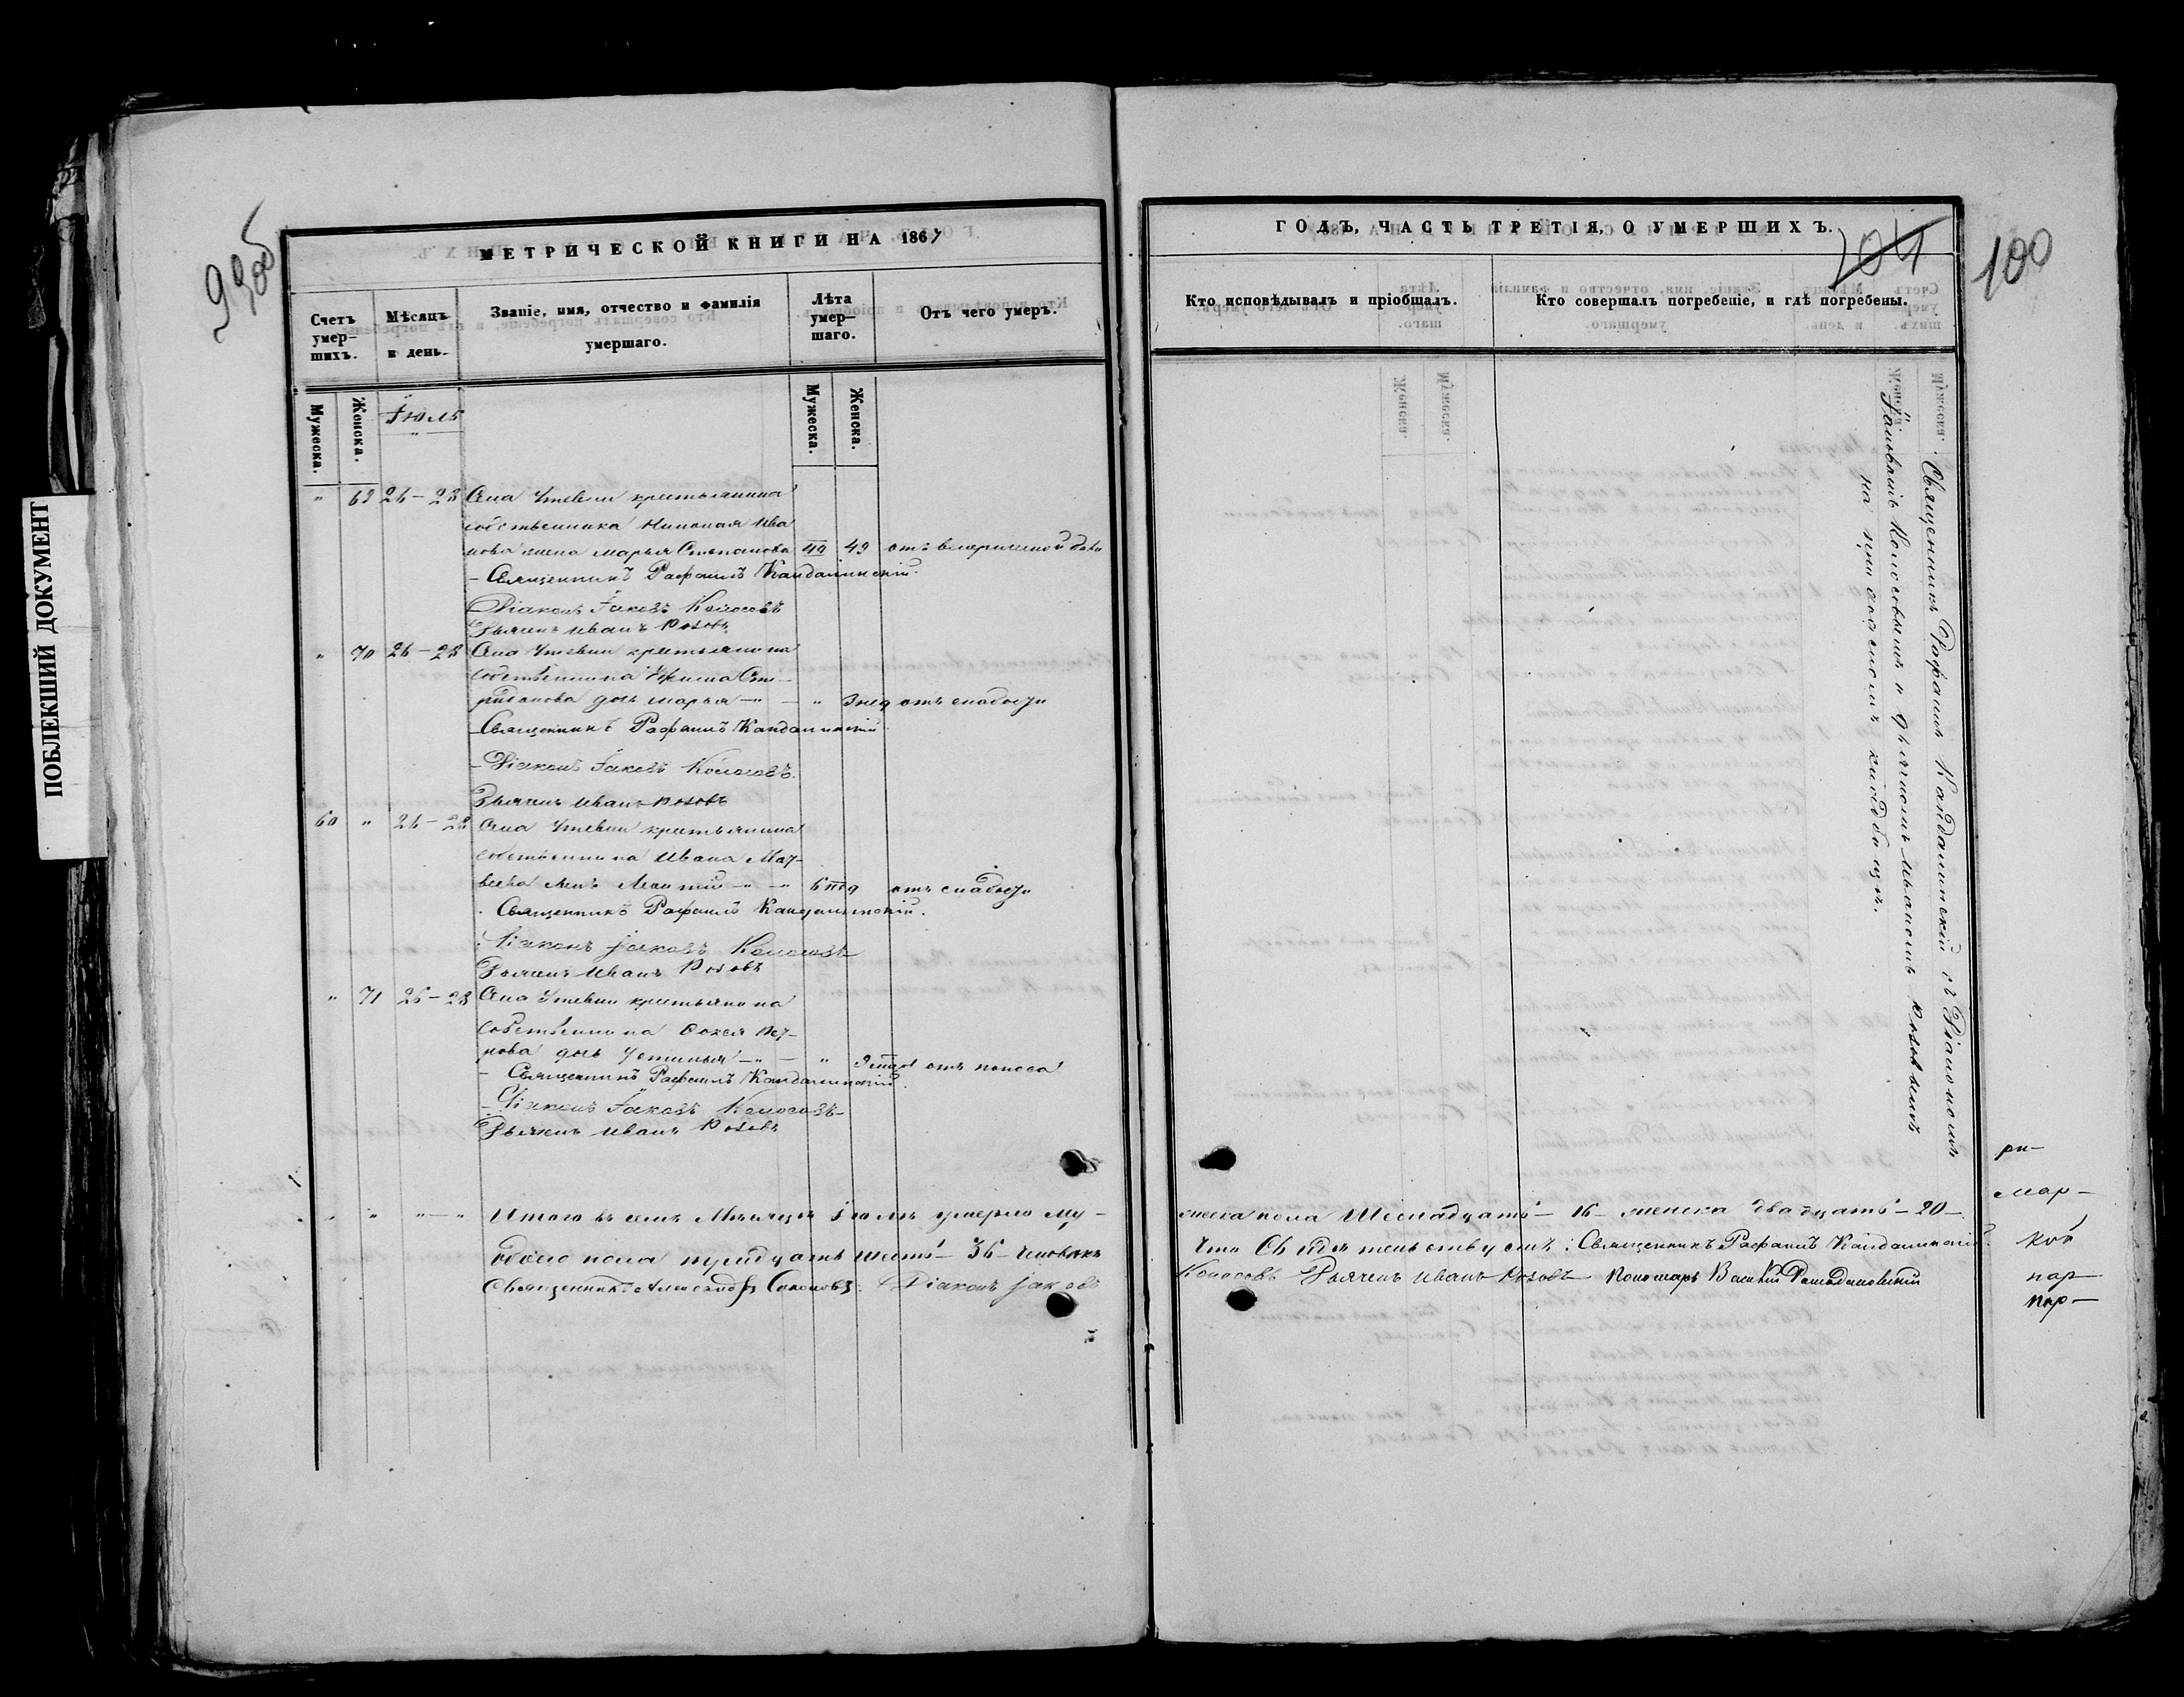 ПОБЛЕКШИЙ ДОКУМЕНТ
99об
МЕТРИЧЕСКОЙ КНИГИ НА 1867
Счетъ умер-шихъ.
Мѣсяцъ и день.
Званіе, имя, отчество и фамилія умершаго.
Лѣта умер-шаго.
Отъ чего умеръ.
Мужеска.
Женска.
Іюль
Мужеска.
Женска.
" 69 26-28 Села Утевки крестьянина
собственника Николая Ива
нова жена Марья Степанова 49 отъ
- Священникъ Рафаилъ Кандалинскій.
Діаконъ Іаковъ Колосовъ
Дьячекъ Иванъ Розовъ
" 70 26-28 Села Утевки крестьянина
собственника
дочь Марья - " - " 3 нед отъ слабости
Священникъ Рафаилъ Кандалинскій
- Діаконъ Іаковъ Колосовъ.
Дьячекъ Иванъ Розовъ
60 " 26-28 Села Утевки крестьянина
собственника Ивана Мат-
веева сынъ - " - " 6 отъ слабости
. Священникъ Рафаилъ Кандалинскій.
Діаконъ Іаковъ Колосовъ
Дьячекъ Иванъ Розовъ
" 71 26-28 Села Утевки крестьянина
собственника Пет-
рова дочь Устинья - " - " отъ поноса
- Священникъ Рафаилъ Кандалинскій.
- Діаконъ Іаковъ Колосовъ
Дьячекъ Иванъ Розовъ
" " "-" Итого въ семъ мѣсяцѣ Іюлѣ умерло му-
обоего пола тридцать шесть - 36 - человѣкъ
Священникъ Александръ Соколовъ. Діаконъ Іаковъ
ГОДЪ, ЧАСТЬ ТРЕТІЯ, О УМЕРШИХЪ.
104
100
Кто исповѣдывалъ и пріобщалъ.
Кто совершалъ погребеніе, и гдѣ погребены.
Священникъ Рафаилъ Кандалинскій съ Діакономъ
Іаковомъ Колосовымъ и дьячкомъ Иваномъ Розовымъ
на приходскомъ кладбищѣ.
жеска пола шеснадцать - 16 - женска двадцать - 20 -
Что свидѣтельствуемъ: Священникъ Рафаилъ Кандалинскій.
Колосовъ Дьячекъ Иванъ Розовъ Пономарь Василій
ри-
мар-
ков
пар-
пар-